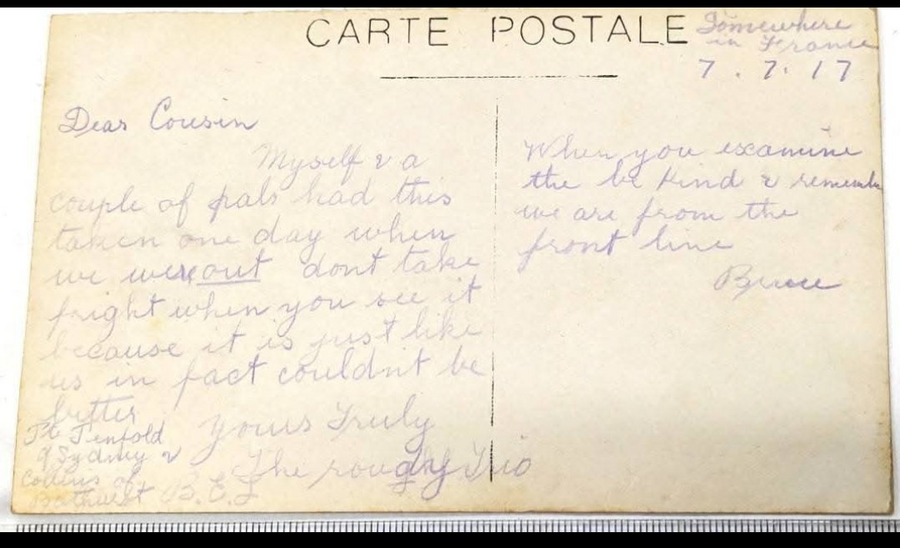 CARTE POSTALE
Somewhere
in France
7. 7. 17
Dear Cousin
Myself & a
couple of pals had this
taken one day when
we were out dont take
fright when you see it
because it is just like
us in fact couldnt be
better
Yours Truly
The Trio
of Sydney &
Collins of
Bathurst
When you examine
the be kind & remember
we are from the
front line
Bruce